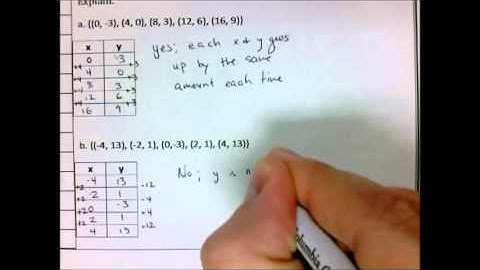 Explain.
a. {(0, -3), (4, 0), (8, 3), (12, 6), (16, 9)}
x y
0 -3
+4 +3
4 0
+4 +3
8 3
+4 +3
12 6
+4 +3
16 9
yes; each x & y goes
up by the same
amount each time
b. {(-4, 13), (-2, 1), (0,-3), (2, 1), (4, 13)}
x y
-4 13
+2 -12
-2 1
+2 -4
0 -3
+2 +4
2 1
+2 +12
4 13
No; y is